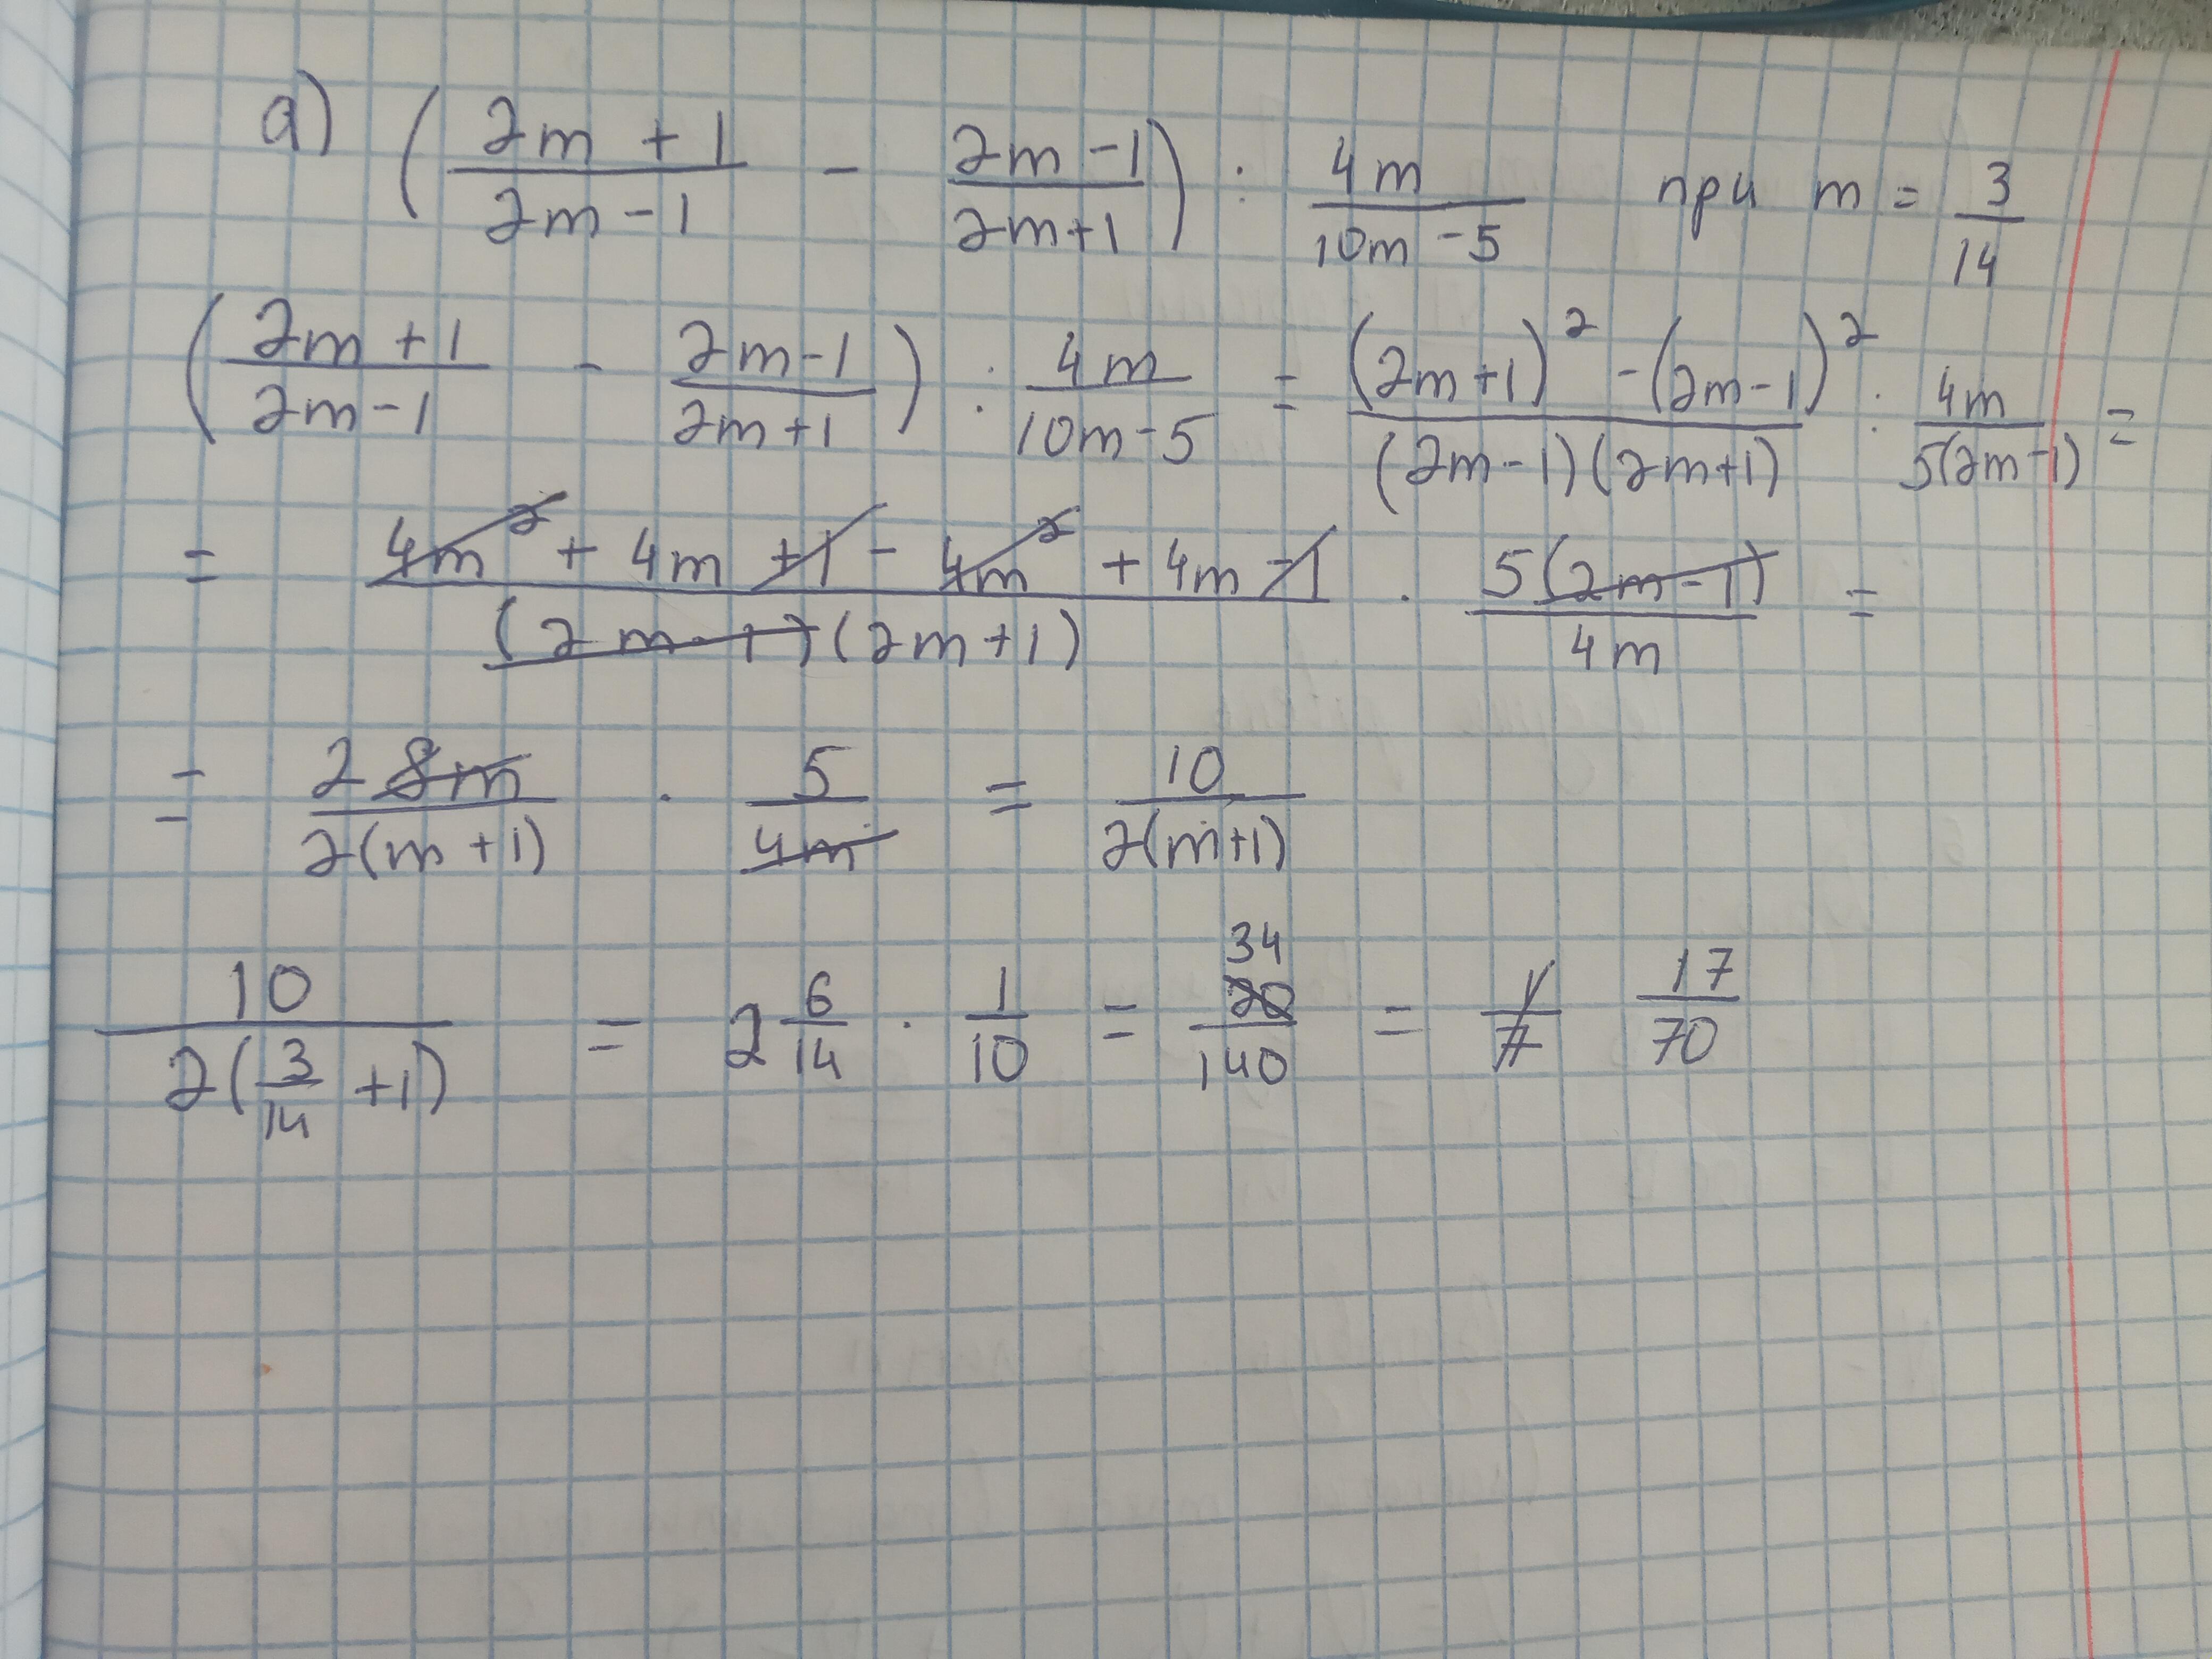 а) ( (2m + 1)/(2m - 1) - (2m - 1)/(2m + 1) ) : 4m/(10m - 5) при m = 3/14
( (2m + 1)/(2m - 1) - (2m - 1)/(2m + 1) ) : 4m/(10m - 5) = ((2m + 1)² - (2m - 1)²)/((2m - 1)(2m + 1)) : 4m/(5(2m - 1)) =
= (4m² + 4m + 1 - 4m² + 4m - 1)/((2m - 1)(2m + 1)) · 5(2m - 1)/4m =
= 2 8m/(2(m + 1)) · 5/4m = 10/(2(m + 1))
10/(2(3/14 + 1)) = 2 6/14 · 1/10 = 34 20/140 = 1/7 17/70